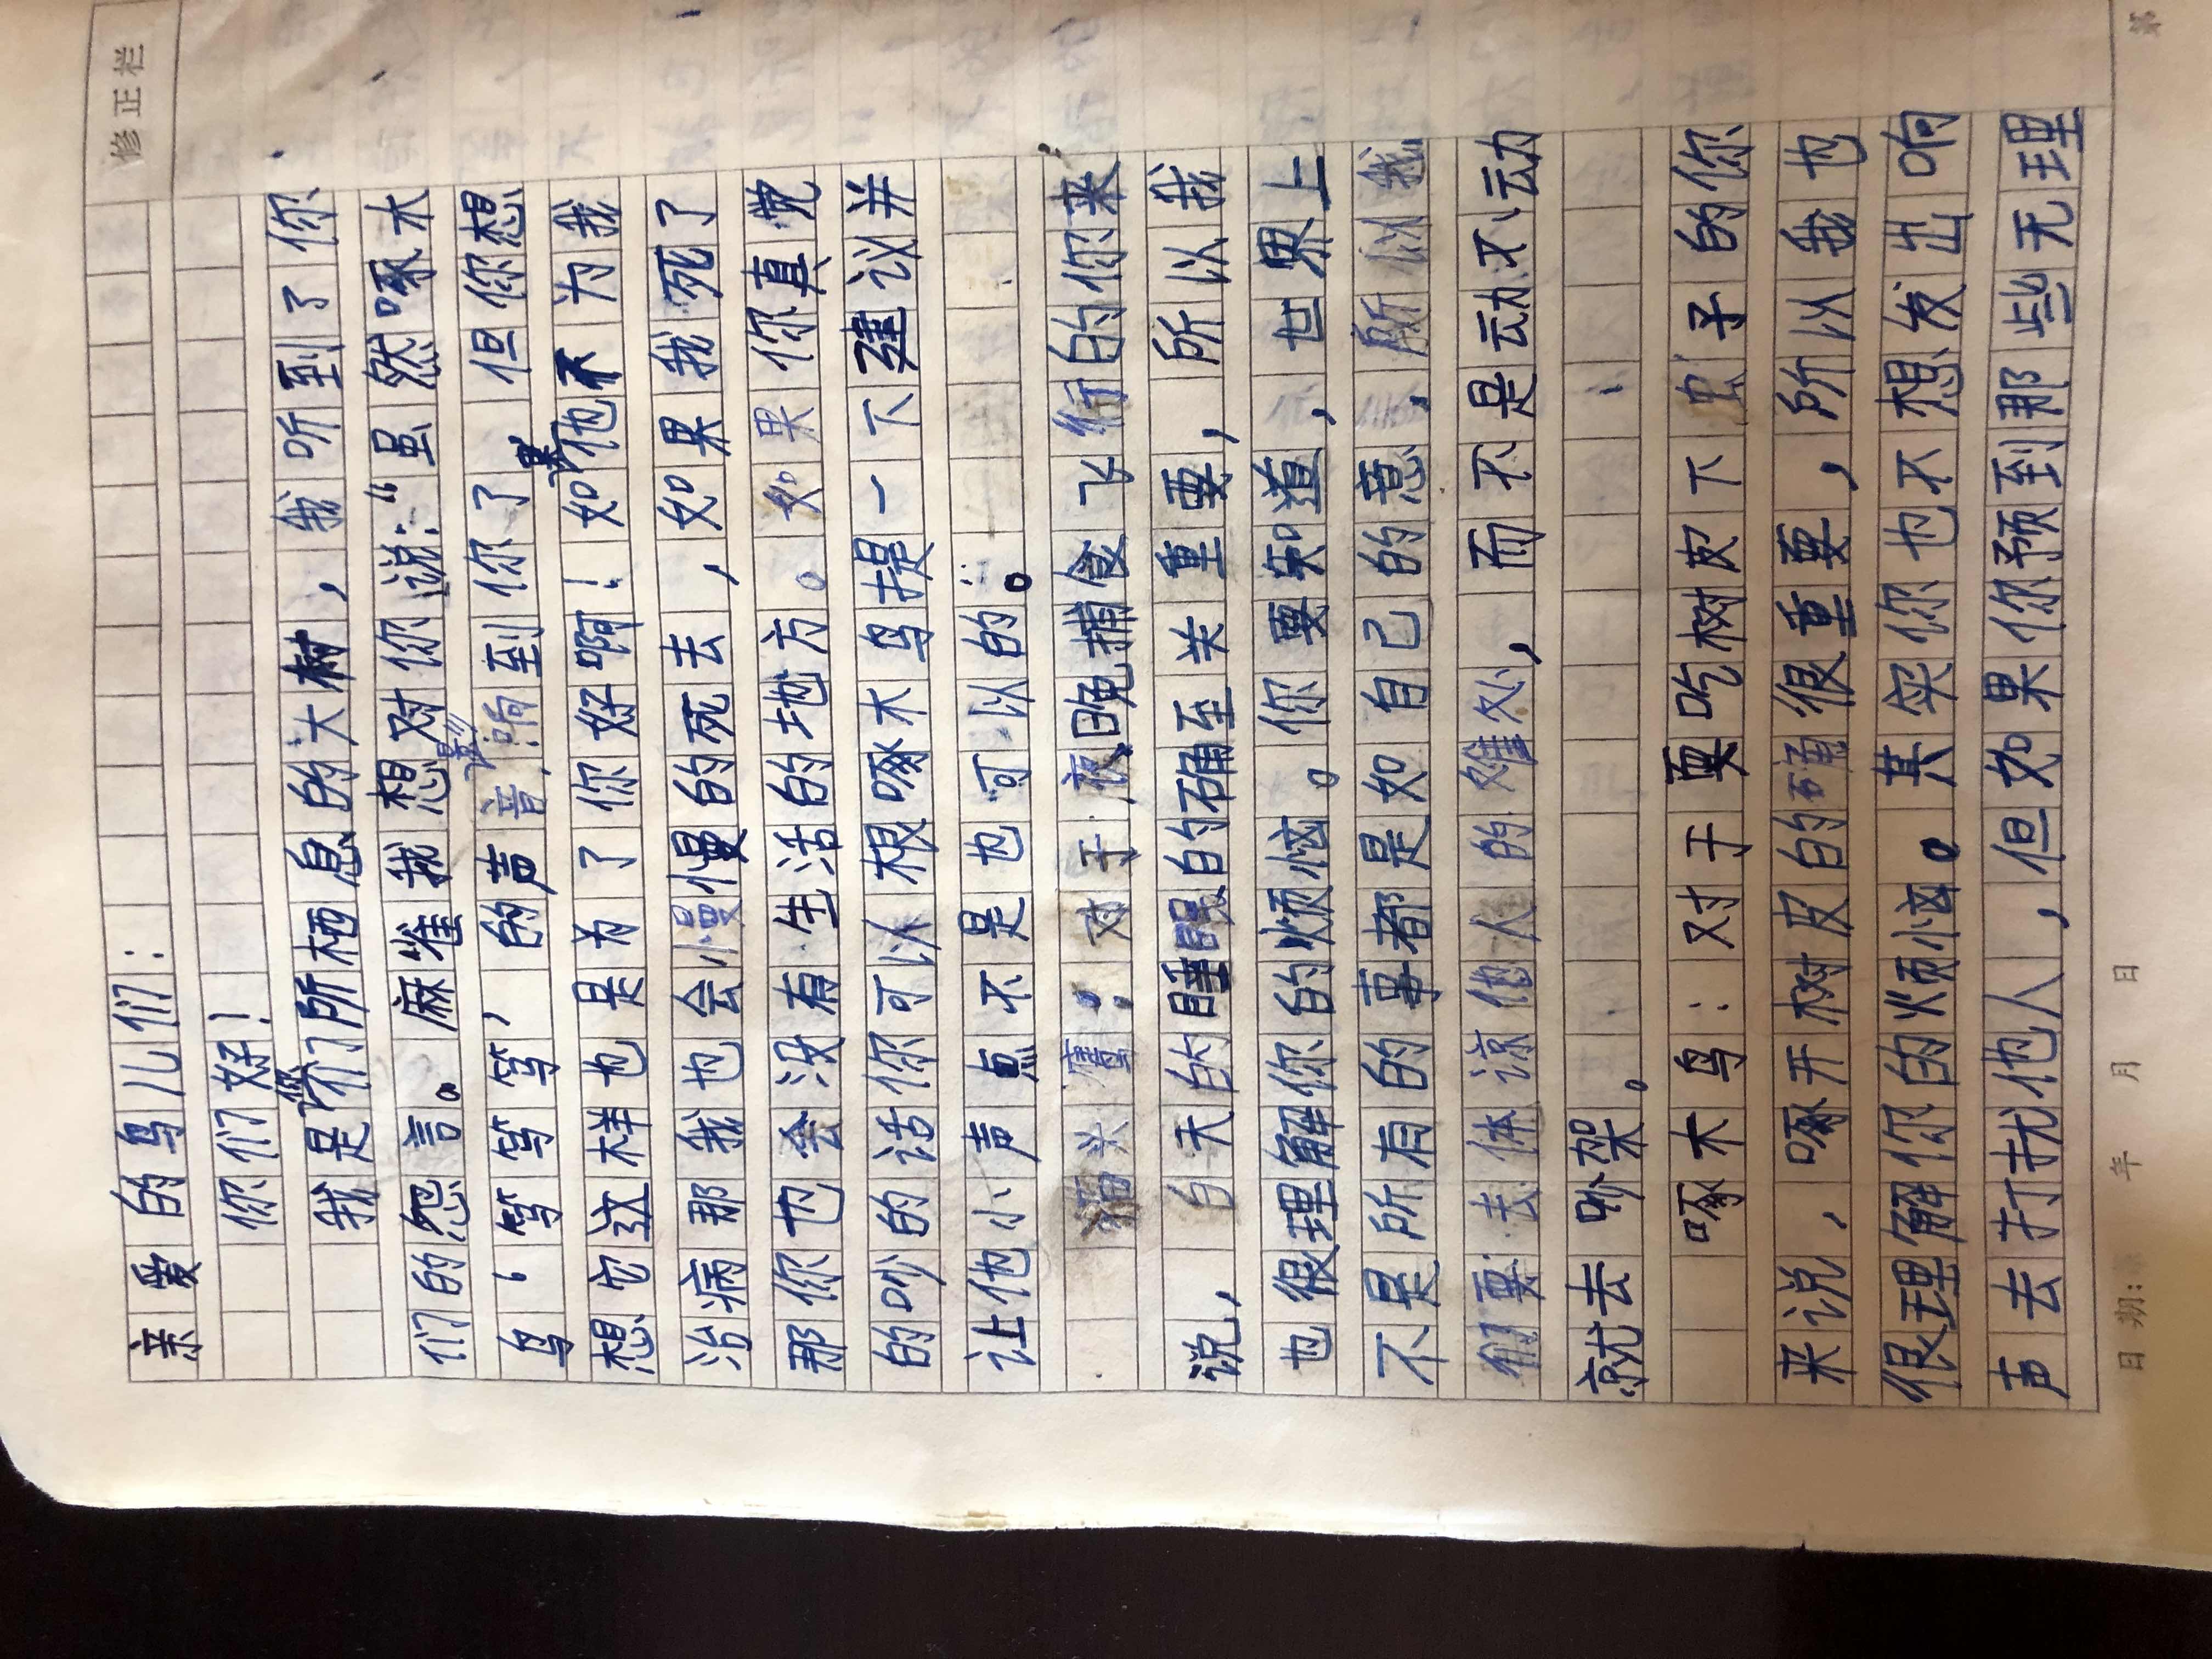 修正栏
亲爱的鸟儿们：
你们好！
我是你们所栖息的大树，我听到了你
们的怨言。麻雀我想对你说：“虽然啄木
鸟‘笃笃笃’的声音影响到你了，但你想
想它这样也是为了你好啊！如果他不为我
治病那我也会慢慢的死去，如果我死了
那你也会没有生活的地方。如果你真觉
的吵的话你可以根啄木鸟提一下建议并
让他小声点不是也可以的。
猫头鹰，对于夜晚捕食飞行的你来
说，白天的睡眠的确至关重要，所以我
也很理解你的烦恼。你要知道，世界上
不是所有的事都是如自己的意，所以我
们要去体谅他人的难处，而不是动不动
就去吵架。
啄木鸟：对于要吃树皮下虫子的你
来说，啄开树皮的确很重要，所以我也
很理解你的烦恼。其实你也不想发出响
声去打扰他人，但如果你预到那些无理
日期： 年 月 日
第